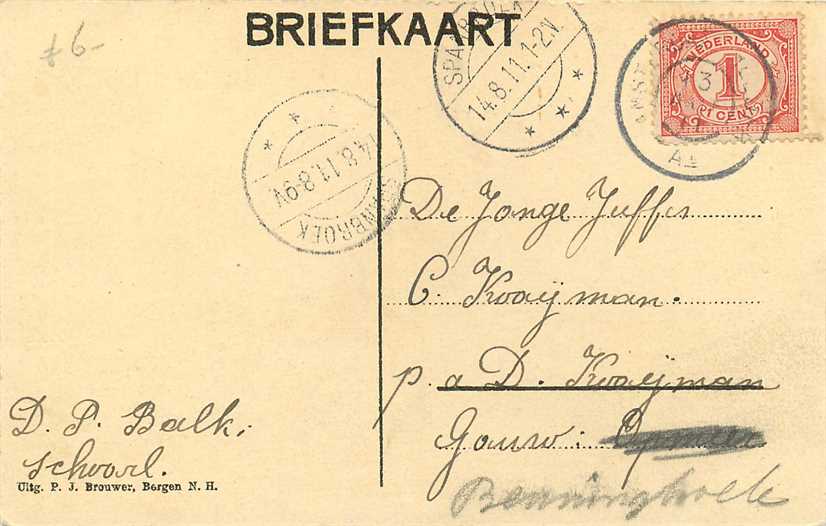 f 6-
BRIEFKAART
SPANBROEK
14.8.11.1-2.N
NEDERLAND
1
1 CENT
14.8.11.8-9V
SPANBROEK
De Jonge Juffrs
C. Kooijman.
p. a D. Kooijman
Gouw: Opmeer
Benninghoek
D. P. Balk.
Schoorl.
Uitg. P. J. Brouwer, Bergen N. H.